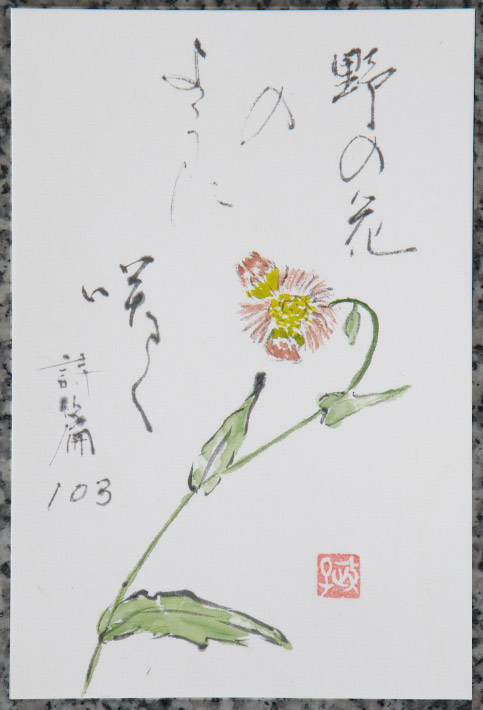 野の花
の
ように
咲く
詩篇
103